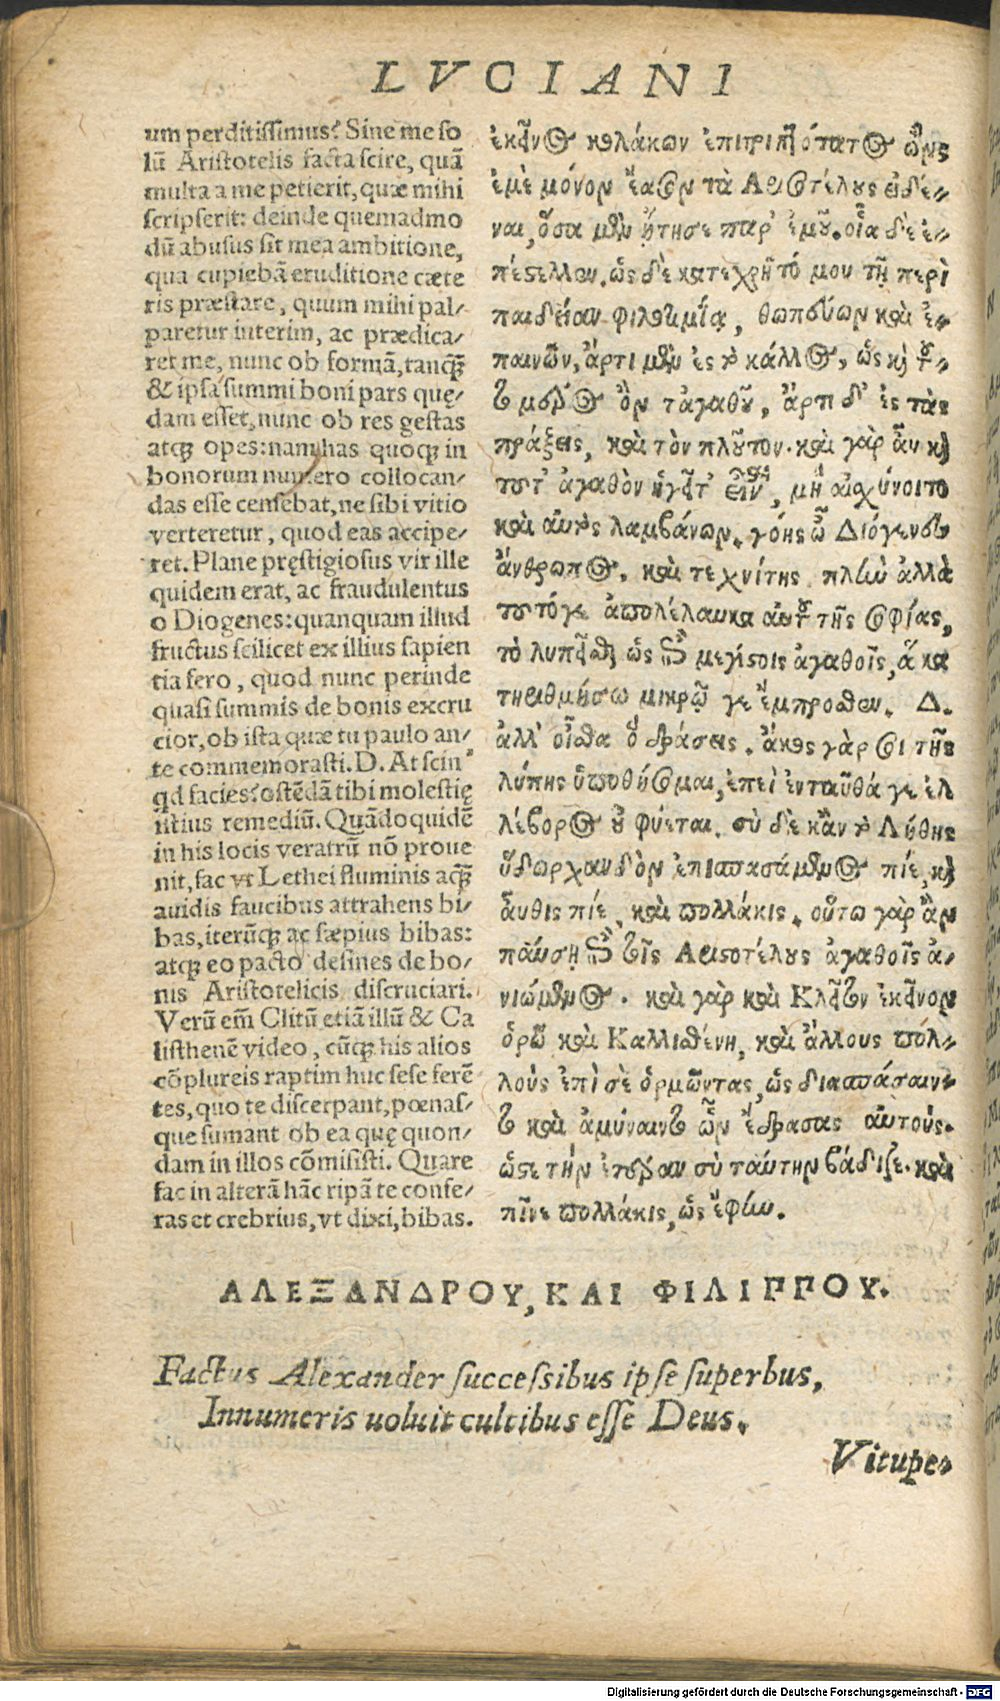 LVCIANI
um perditissimus? Sine me so
lũ Aristotelis facta scire, quã
multa a me petierit, quæ mihi
scripserit: deinde quemadmo
dũ abusus sit mea ambitione,
qua cupiebã eruditione cæte
ris præstare, quum mihi pal-
paretur interim, ac prædica-
ret me, nunc ob formã, tanq̃
& ipsa summi boni pars quę-
dam esset, nunc ob res gestas
atq; opes: nam has quoq; in
bonorum numero collocan-
das esse censebat, ne sibi vitio
verteretur, quod eas accipe-
ret. Plane pręstigiosus vir ille
quidem erat, ac fraudulentus
o Diogenes: quanquam illud
fructus scilicet ex illius sapien
tia fero, quod nunc perinde
quasi summis de bonis excru
cior, ob ista quæ tu paulo an-
te commemorasti. D. At scin'
qd facies? ostẽdã tibi molestię
istius remediũ. Quãdoquidẽ
in his locis veratrũ nõ proue
nit, fac vt Lethei fluminis aq̃
auidis faucibus attrahens bi-
bas, iterũq; ac sæpius bibas:
atq; eo pacto desines de bo-
nis Aristotelicis discruciari.
Verũ em̃ Clitũ etiã illũ & Ca
listhenẽ video, cũq; his alios
cõplureis raptim huc sese ferẽ
tes, quo te discerpant, pœnas-
que sumant ob ea quę quon-
dam in illos cõmisisti. Quare
fac in alterã hãc ripã te confe-
ras et crebrius, vt dixi, bibas.
ἐκεῖνος κολάκων ἐπιτριπτότατος ὤν;
ἐμὲ μόνον ἔασον τὰ Ἀριστέλους εἰδέ-
ναι, ὅσα μὲν ᾔτησε παρ' ἐμοῦ. οἷα δὲ ἐ-
πέστελλεν. ὡς δὲ κατεχρῆτό μου τῇ περὶ
παιδείαν φιλοτιμίᾳ, θωπεύων καὶ ἐ-
παινῶν, ἄρτι μὲν ἐς τὸ κάλλος, ὡς καὶ τοῦ-
το μέρος ὂν τἀγαθοῦ, ἄρτι δ' ἐς τὰς
πράξεις, καὶ τὸν πλοῦτον. καὶ γὰρ ἂν καὶ
τοῦτ' ἀγαθὸν ἡγεῖτ' εἶναι, μὴ αἰσχύνοιτο
καὶ αὐτὸς λαμβάνων. γόης ὦ Διόγενες
ἄνθρωπος, καὶ τεχνίτης πλὴν ἀλλὰ
τοῦτόγε ἀπολέλαυκα αὐτοῦ τῆς σοφίας,
τὸ λυπεῖσθαι ὡς ἐπὶ μεγίστοις ἀγαθοῖς, ἃ κα
τηριθμήσω μικρῷ γε ἔμπροσθεν. Δ.
ἀλλ' οἶσθα ὃ δράσεις. ἄκος γὰρ σοι τῆς
λύπης ὑποθήσομαι, ἐπεὶ ἐνταῦθά γε ἑλ
λέβορος οὐ φύεται. σὺ δὲ κἂν τὸ Λήθης
ὕδωρ χανδὸν ἐπισπασάμενος πίε, καὶ
αὖθις πίε, καὶ πολλάκις. οὕτω γὰρ ἂν
παύσῃ ἐπὶ τοῖς Ἀριστοτέλους ἀγαθοῖς ἀ-
νιώμενος. καὶ γὰρ καὶ Κλεῖτον ἐκεῖνον
ὁρῶ καὶ Καλλισθένη, καὶ ἄλλους πολ-
λοὺς ἐπὶ σὲ ὁρμῶντας, ὡς διασπάσαιν-
το καὶ ἀμύναιντο ὧν ἔδρασας αὐτούς.
ὥστε τὴν ἑτέραν σὺ ταύτην βάδιζε. καὶ
πῖνε πολλάκις, ὡς ἔφην.
ΑΛΕΞΑΝΔΡΟΥ, ΚΑΙ ΦΙΛΙΠΠΟΥ.
Factus Alexander successibus ipse superbus,
Innumeris uoluit cultibus esse Deus.
Vitupe-
Digitalisierung gefördert durch die Deutsche Forschungsgemeinschaft - DFG